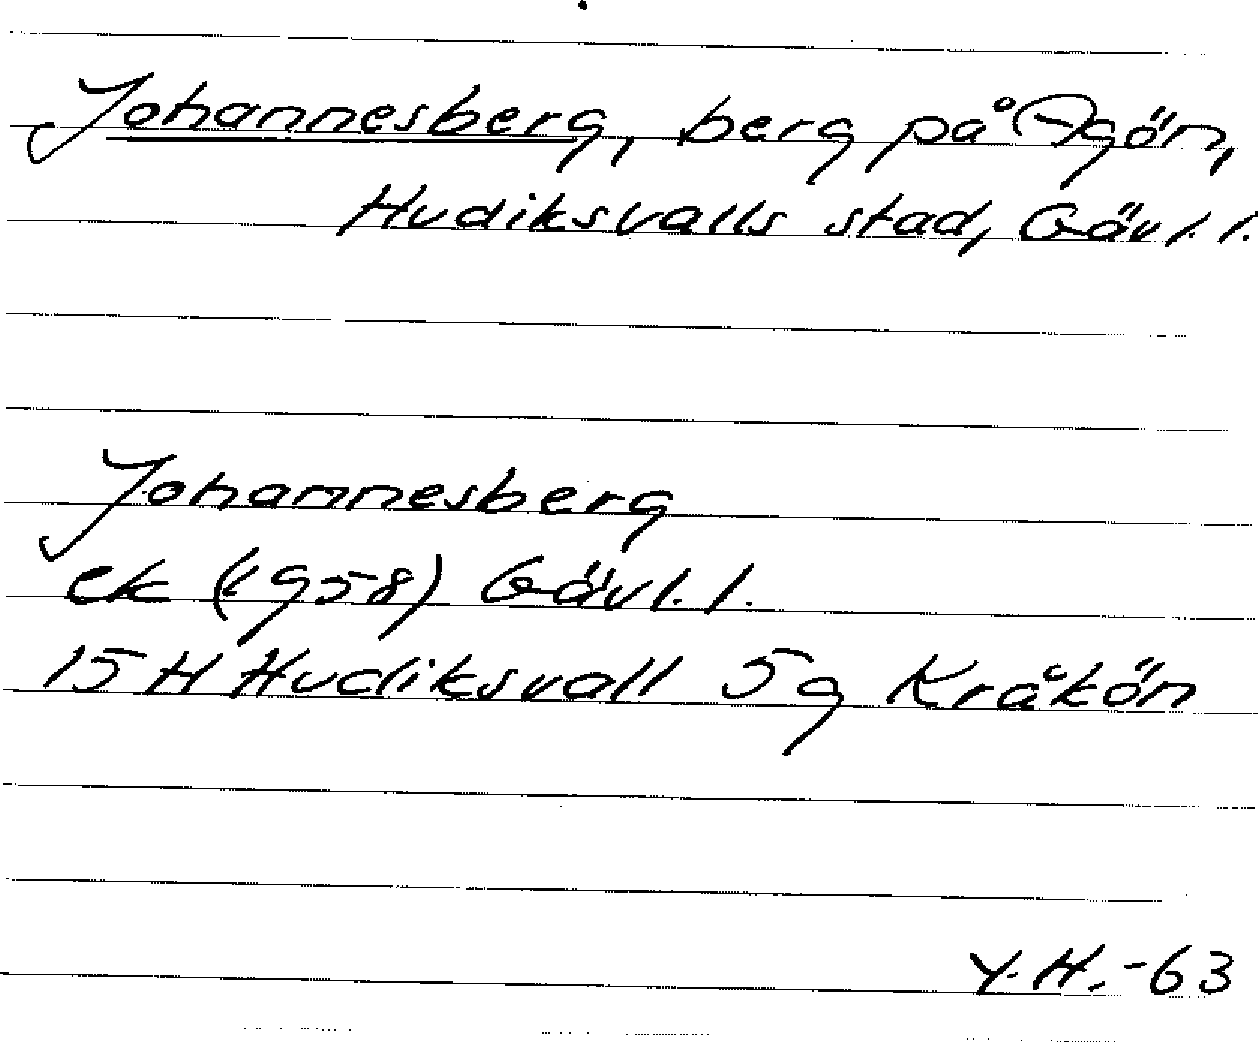 Johannesberg, berg på Agön,
Hudiksvalls stad, Gävl. l.
Johannesberg
ek (1958) Gävl. l.
15 H Hudiksvall 5g Kråkön
Y. H. -63